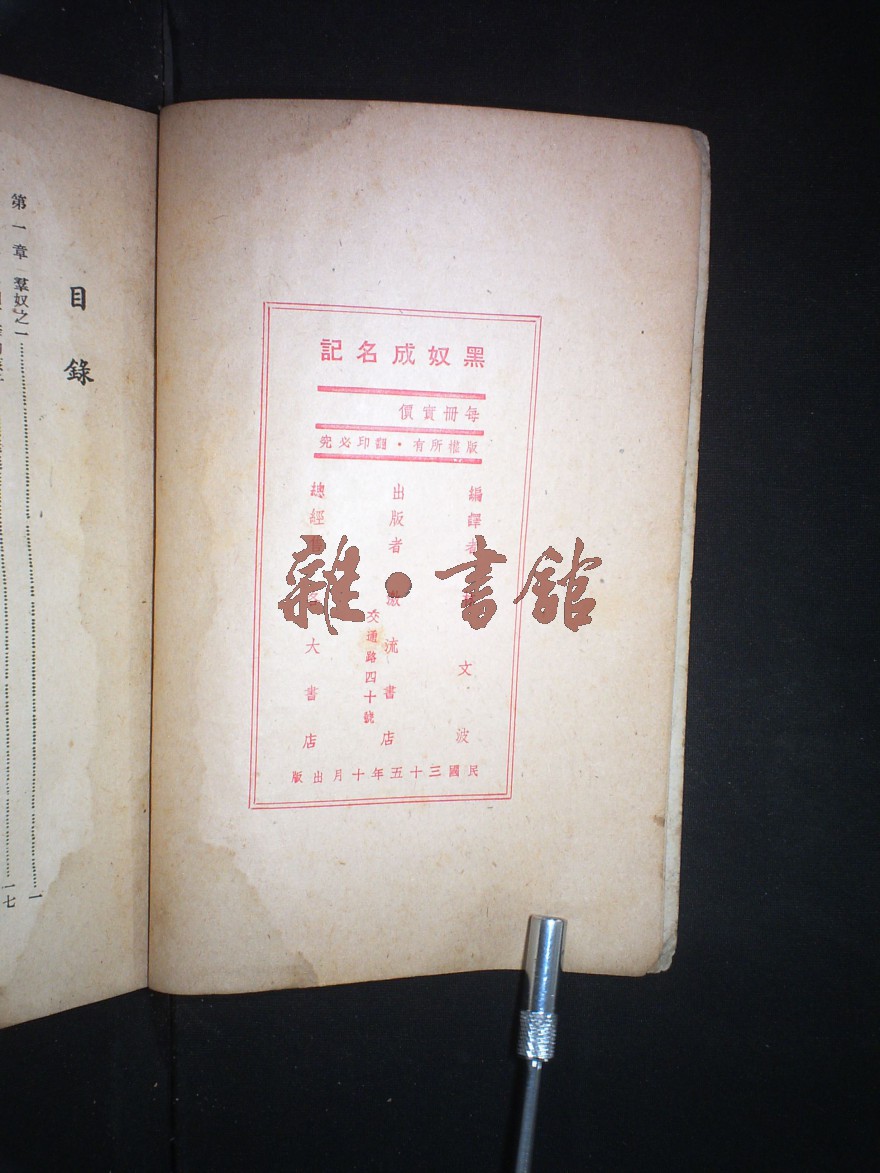 黑奴成名記
每冊實價
版權所有・翻印必究
編譯者 文波
出版者 激流書店
交通路四十號
總經 大書店
民國三十五年十月出版
雜・書館
目錄
第一章 羣奴之一 一
一七